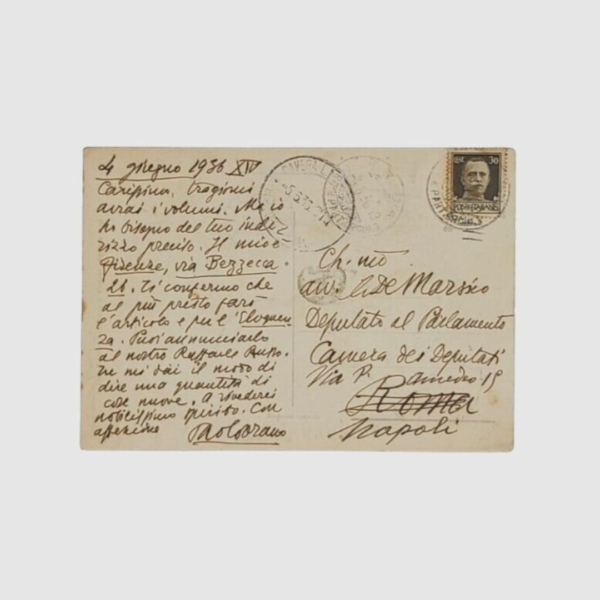 4 giugno 1936 XIV
Carissimo, tragioni
avrai i volumi. Ma io
ho bisogno del tuo indi-
rizzo preciso. Il mio è
Firenze, via Bezzecca
Ti confermo che
al più presto farò
l'articolo e per l'Eloquen-
za. Puoi annunciarlo
al nostro Raffaele Russo.
Tu mi dai il modo di
dire una quantità di
cose nuove. A rivederci
Con
affezione Paolo Orano
Ch. mo
avv. De Marsico
Deputato al Parlamento
Camera dei Deputati
Via P. Amedeo 15
Roma
Napoli
30